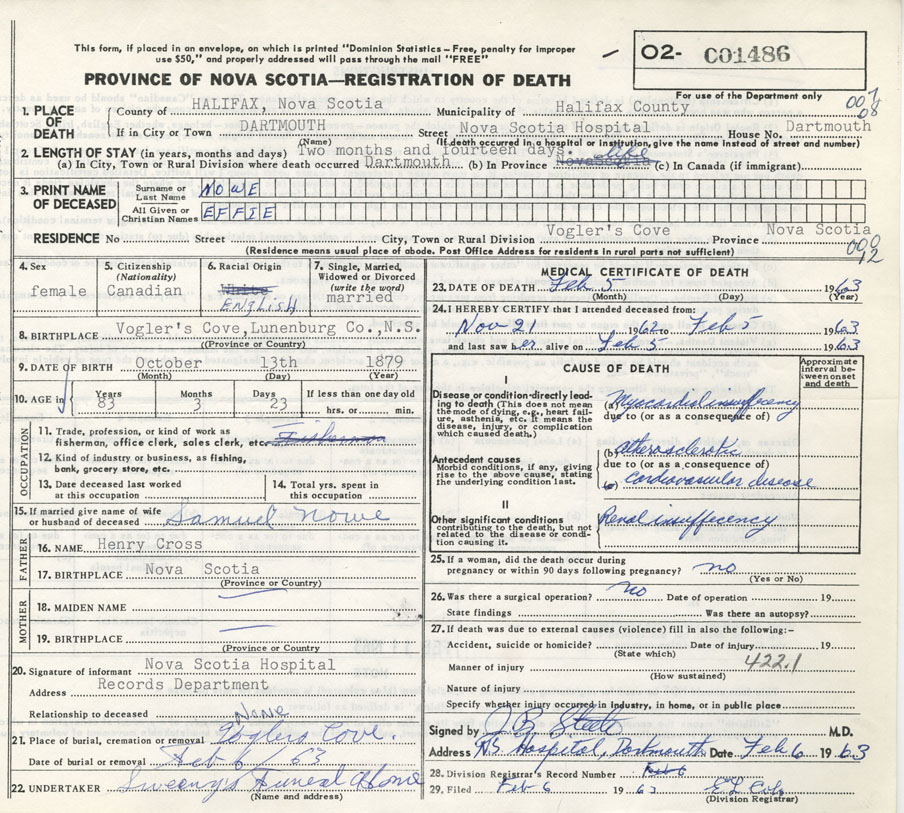 This form, if placed in an envelope, on which is printed "Dominion Statistics – Free, penalty for improper
use $50," and properly addressed will pass through the mail "FREE"
02- C01486
For use of the Department only
PROVINCE OF NOVA SCOTIA—REGISTRATION OF DEATH
1. PLACE OF DEATH
County of HALIFAX, Nova Scotia Municipality of Halifax County 007 08
If in City or Town DARTMOUTH Street Nova Scotia Hospital House No. Dartmouth
(Name) (If death occurred in a hospital or institution, give the name instead of street and number)
2. LENGTH OF STAY (in years, months and days) Two months and fourteen days.
(a) In City, Town or Rural Division where death occurred Dartmouth (b) In Province Nova Scotia life (c) In Canada (if immigrant)
3. PRINT NAME OF DECEASED
Surname or Last Name NOWE
All Given or Christian Names EFFIE
RESIDENCE No Street City, Town or Rural Division Vogler's Cove Province Nova Scotia
(Residence means usual place of abode. Post Office Address for residents in rural parts not sufficient) 000 12
4. Sex female
5. Citizenship (Nationality) Canadian
6. Racial Origin White ENGLISH
7. Single, Married, Widowed or Divorced (write the word) married
8. BIRTHPLACE Vogler's Cove,Lunenburg Co.,N.S.
(Province or Country)
9. DATE OF BIRTH October 13th 1879
(Month) (Day) (Year)
10. AGE in Years 83 Months 3 Days 23 If less than one day old hrs. or min.
OCCUPATION
11. Trade, profession, or kind of work as
fisherman, office clerk, sales clerk, etc. Fisherman
12. Kind of industry or business, as fishing,
bank, grocery store, etc.
13. Date deceased last worked at this occupation
14. Total yrs. spent in this occupation
15. If married give name of wife
or husband of deceased Samuel Nowe
FATHER
16. NAME Henry Cross
17. BIRTHPLACE Nova Scotia
(Province or Country)
MOTHER
18. MAIDEN NAME
19. BIRTHPLACE
(Province or Country)
20. Signature of informant Nova Scotia Hospital
Address Records Department
Relationship to deceased None
21. Place of burial, cremation or removal Voglers Cove.
Date of burial or removal Feb 6 / 63
22. UNDERTAKER Sweeny's Funeral Home
(Name and address)
MEDICAL CERTIFICATE OF DEATH
23. DATE OF DEATH Feb 5 1963
(Month) (Day) (Year)
24. I HEREBY CERTIFY that I attended deceased from:
Nov 21 1962 to Feb 5 1963
and last saw her alive on Feb 5 1963
CAUSE OF DEATH
Approximate interval between onset and death
I
Disease or condition directly leading
to death (This does not mean
the mode of dying, e.g., heart failure,
asthenia, etc. It means the
disease, injury, or complication
which caused death.)
(a) Myocardial insuffecency
due to (or as a consequence of)
Antecedent causes
Morbid conditions, if any, giving
rise to the above cause, stating
the underlying condition last.
(b) atherosclerotic
due to (or as a consequence of)
(c) Cardiovascular disease
II
Other significant conditions
contributing to the death, but not
related to the disease or condition
causing it.
Renal insuffecency
25. If a woman, did the death occur during
pregnancy or within 90 days following pregnancy? no
(Yes or No)
26. Was there a surgical operation? no Date of operation 19
State findings Was there an autopsy?
27. If death was due to external causes (violence) fill in also the following:–
Accident, suicide or homicide? Date of injury 19
(State which)
Manner of injury 422.1
(How sustained)
Nature of injury
Specify whether injury occurred in industry, in home, or in public place
Signed by J B Steele M.D.
Address N.S. Hospital, Dartmouth Date Feb 6 1963
28. Division Registrar's Record Number Feb 6
29. Filed Feb 6 1963
(Division Registrar)